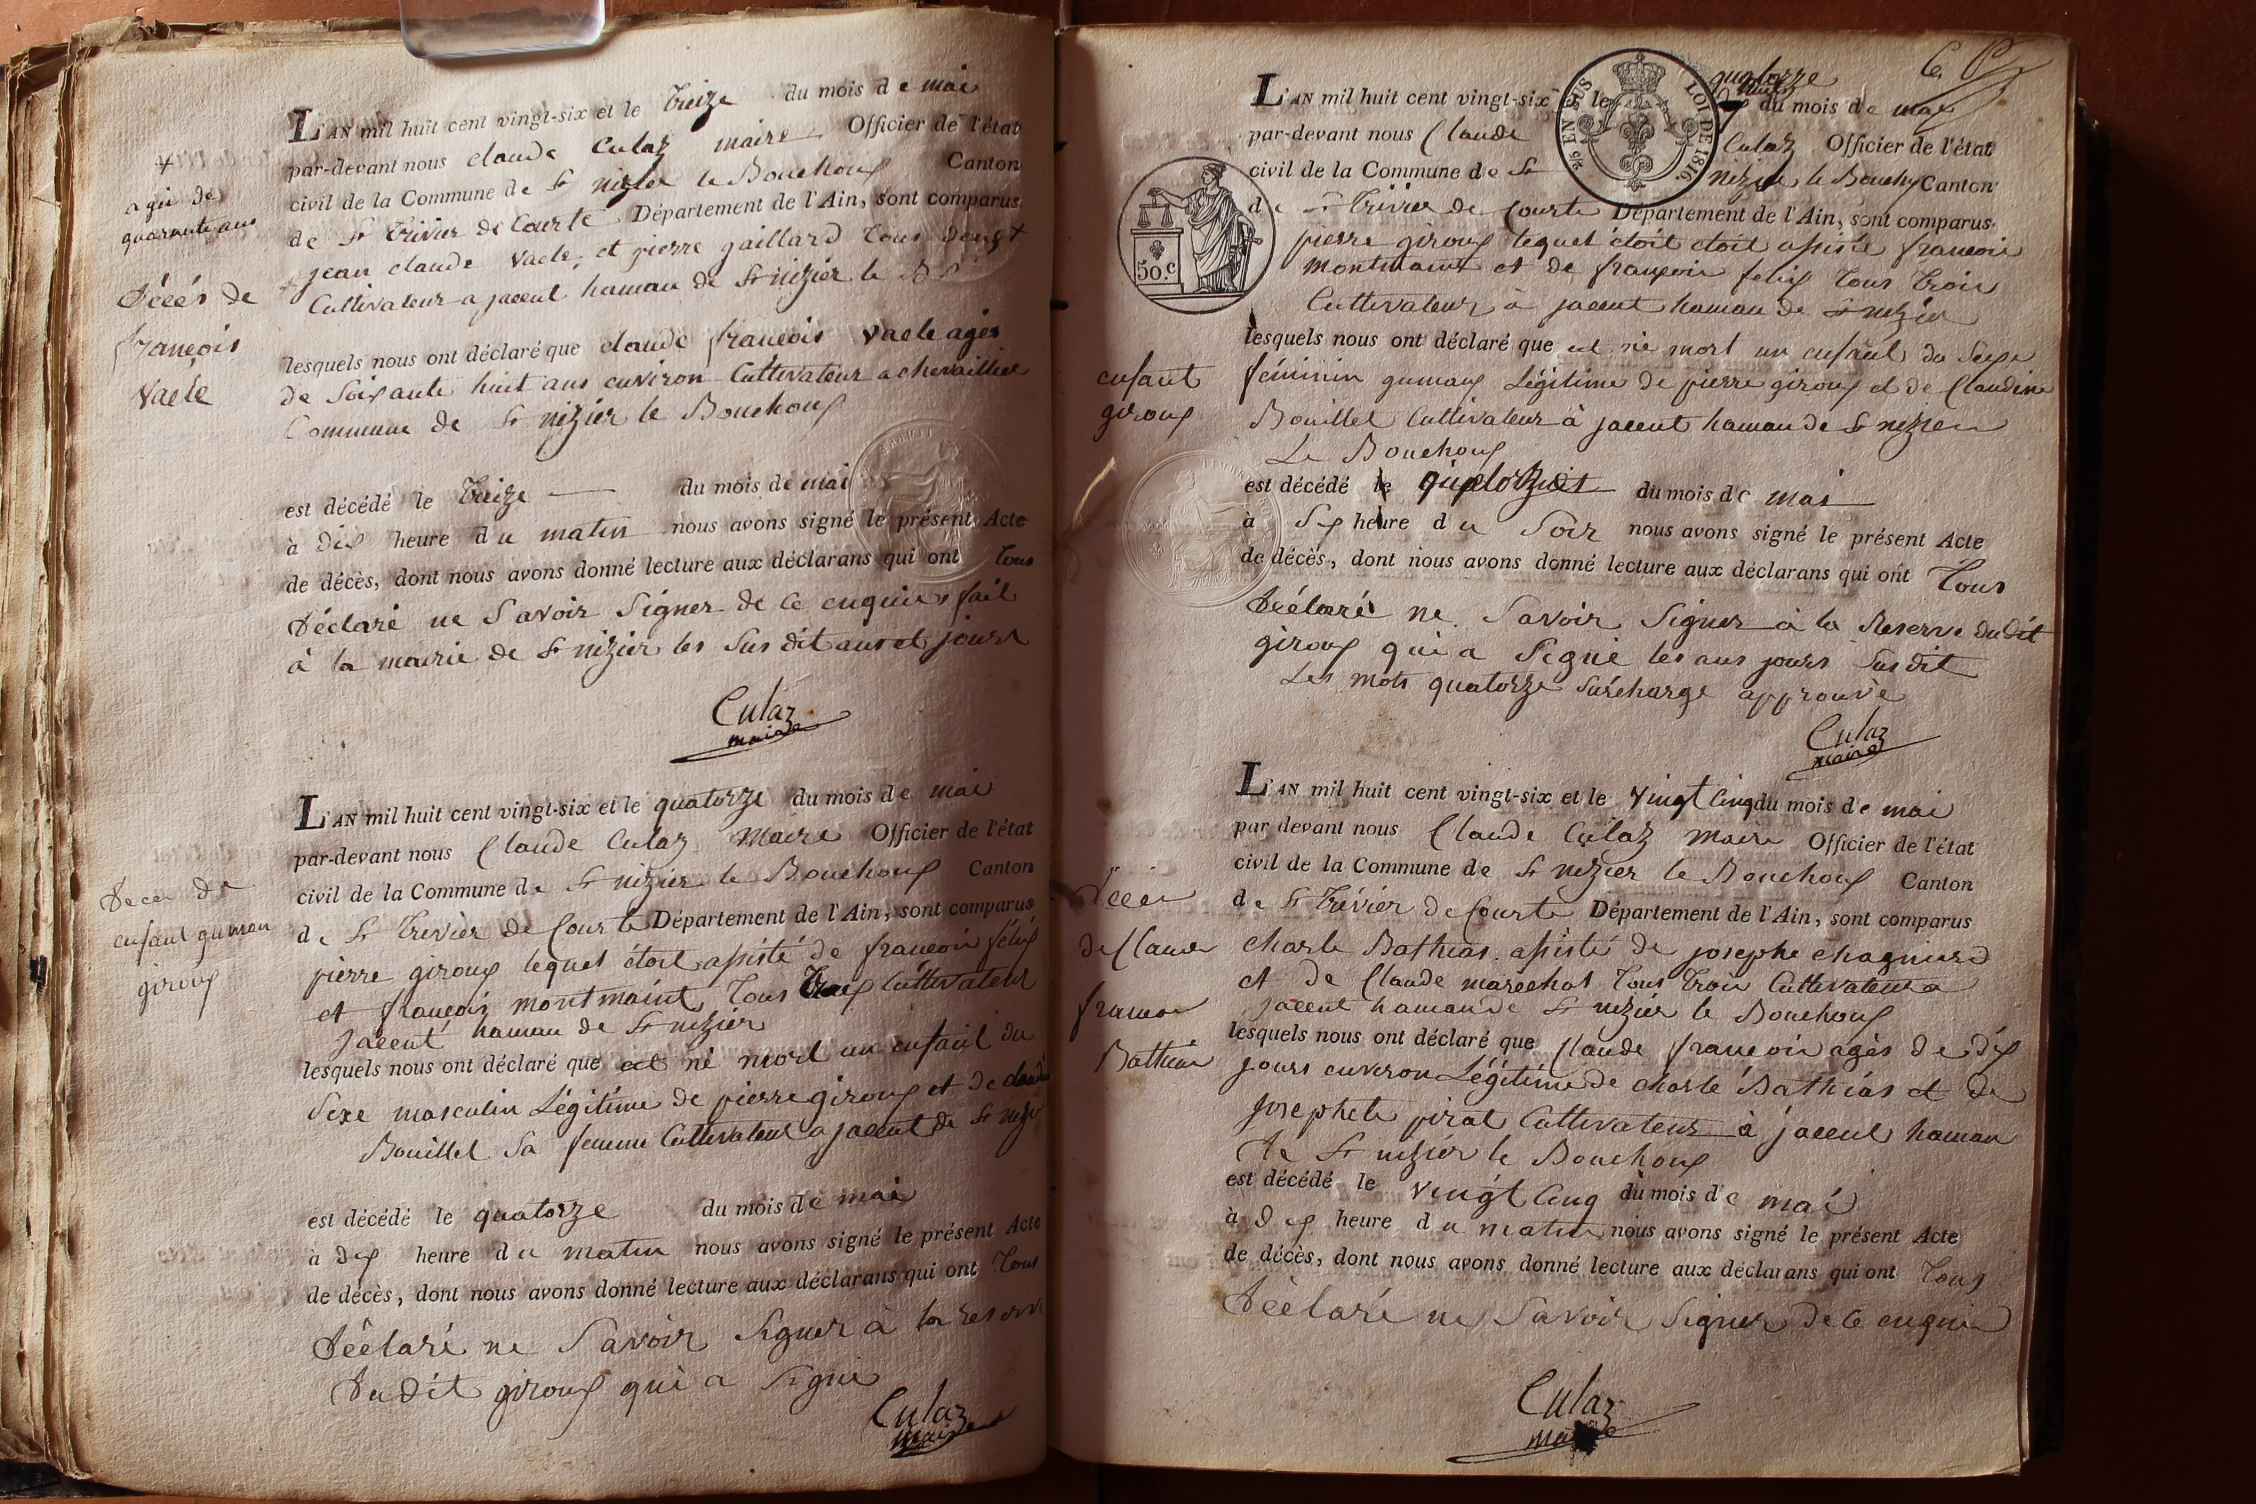 L'AN mil huit cent vingt-six et le treize du mois de mai
par-devant nous claude Culaz maire Officier de l'état
civil de la Commune de St nizier le Bouchoux Canton
de St Trivier de Courte Département de l'Ain, sont comparus
jean claude vacle, et pierre gaillard tous deux +
Cultivateur a jacent hamau de St nizier le B
+
agés de
quarante ans
Décés de
françois
vacle
lesquels nous ont déclaré que claude françois vacle agés
de Soixante huit ans environ Cultivateur a
Commune de St nizier le Bouchoux
est décédé le treize du mois de mai
à dix heure du matin nous avons signé le présent Acte
de décès, dont nous avons donné lecture aux déclarans qui ont tous
Déclaré ne Savoir Signer de ce enquis fait
à la mairie de St nizier les Sus dit an et jours
Culaz
maire
L'AN mil huit cent vingt-six et le quatorze du mois de mai
par-devant nous Claude Culaz Maire Officier de l'état
civil de la Commune de St nizier le Bouchoux Canton
de St Trivier de Courte Département de l'Ain, sont comparus
pierre giroux lequel étoit assisté de françois félix
et françois montmaint tous trois Cultivateur
jacent hamau de St nizier
Deces de
enfant gumau
giroux
lesquels nous ont déclaré que est né mort un enfant du
Sexe masculin Légitime de pierre giroux et de
Bouillet Sa femme Cultivateur a jacent de St
est décédé le quatorze du mois de mai
à dix heure du matin nous avons signé le présent Acte
de décès, dont nous avons donné lecture aux déclarans qui ont tous
Déclaré ne Savoir Signer à la reserve
Dudit giroux qui a Signé
Culaz
maire
EN SUS
LOI DE 1816.
50.c
L'AN mil huit cent vingt-six le quatorze du mois de mai
par-devant nous Claude Culaz Officier de l'état
civil de la Commune de St nizier le Canton
de St Trivier de Courte Département de l'Ain, sont comparus
pierre giroux lequel étoit étoit assisté françois
montmaint et de françois felix tous trois
Cultivateur à jacent hamau de St nizier
enfant
giroux
lesquels nous ont déclaré que est né mort un enfant du Sexe
féminin gumaux Légitime de pierre giroux et de Claudine
Bouillet Cultivateur à jacent hamau de St nizier
Le Bouchoux
est décédé le du mois de mai
à Six heure du Soir nous avons signé le présent Acte
de décès, dont nous avons donné lecture aux déclarans qui ont Tous
Déclaré ne Savoir Signer à la Reserve dudit
giroux qui a Signé les ans jours Susdit
Les mots quatorze Surcharge approuvé
Culaz
maire
L'AN mil huit cent vingt-six et le vingt Cinq du mois de mai
par devant nous Claude Culaz Maire Officier de l'état
civil de la Commune de St nizier le Bouchoux Canton
de St Trévier de Courte Département de l'Ain, sont comparus
Charle Bathias assisté de josephe Chagniard
et de Claude maréchal tous trois Cultivateur a
jacent hamau de St nizier le Bouchoux
Décés
de Claude
francois
Bathias
lesquels nous ont déclaré que Claude françois agés de dix
jours environ Légitime de Charle Bathias et de
josephete pirat Cultivateur à jacent hamau
de St nizier le Bouchoux
est décédé le vingt Cinq du mois de mai
à dix heure du matin nous avons signé le présent Acte
de décès, dont nous avons donné lecture aux déclarans qui ont Tous
Déclaré ne Savoir Signer de ce enquis
Culaz
maire